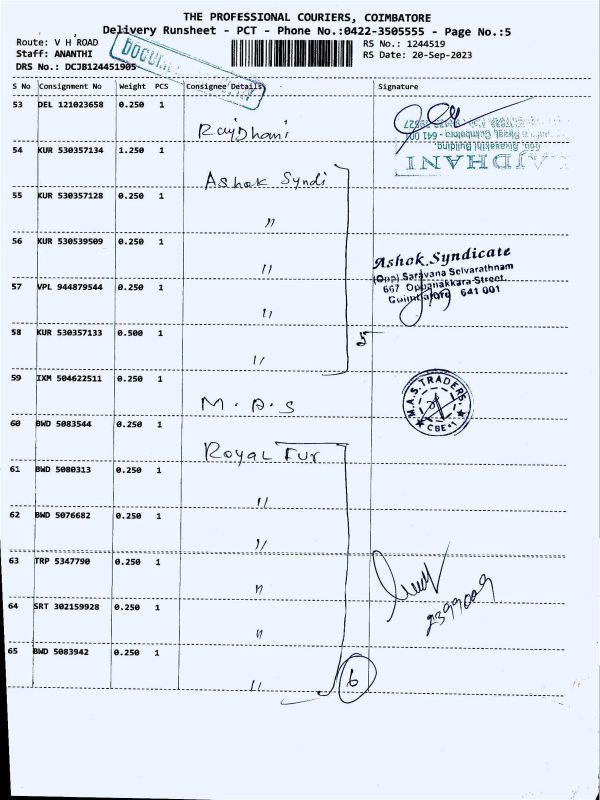 THE PROFESSIONAL COURIERS, COIMBATORE
Delivery Runsheet - PCT - Phone No.:0422-3505555 - Page No.:5
Route: V H ROAD
RS No.: 1244519
Staff: ANANTHI
RS Date: 20-Sep-2023
DRS No.: DCJB124451905
S No Consignment No Weight PCS Consignee Details Signature
53 DEL 121023658 0.250 1
Rajdhani
54 KUR 530357134 1.250 1
AJDHANI
Ashok Syndi
55 KUR 530357128 0.250 1
"
56 KUR 530539509 0.250 1
"
Ashok Syndicate
(Opp) Saravana Selvarathnam
667 Oppanakkara Street
Coimbatore 641 001
57 VPL 944879544 0.250 1
"
58 KUR 530357133 0.500 1
5
"
59 IXM 504622511 0.250 1
M.A.S
M.A.S. TRADERS
CBE-1
60 BWD 5083544 0.250 1
Royal Fur
61 BWD 5080313 0.250 1
"
62 BWD 5076682 0.250 1
"
63 TRP 5347790 0.250 1
"
64 SRT 302159928 0.250 1
"
65 BWD 5083942 0.250 1
"
6